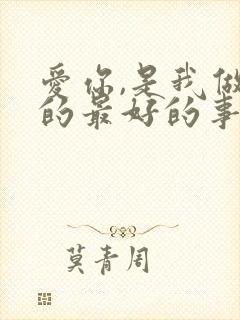 爱你,是我做
的最好的事
莫青周